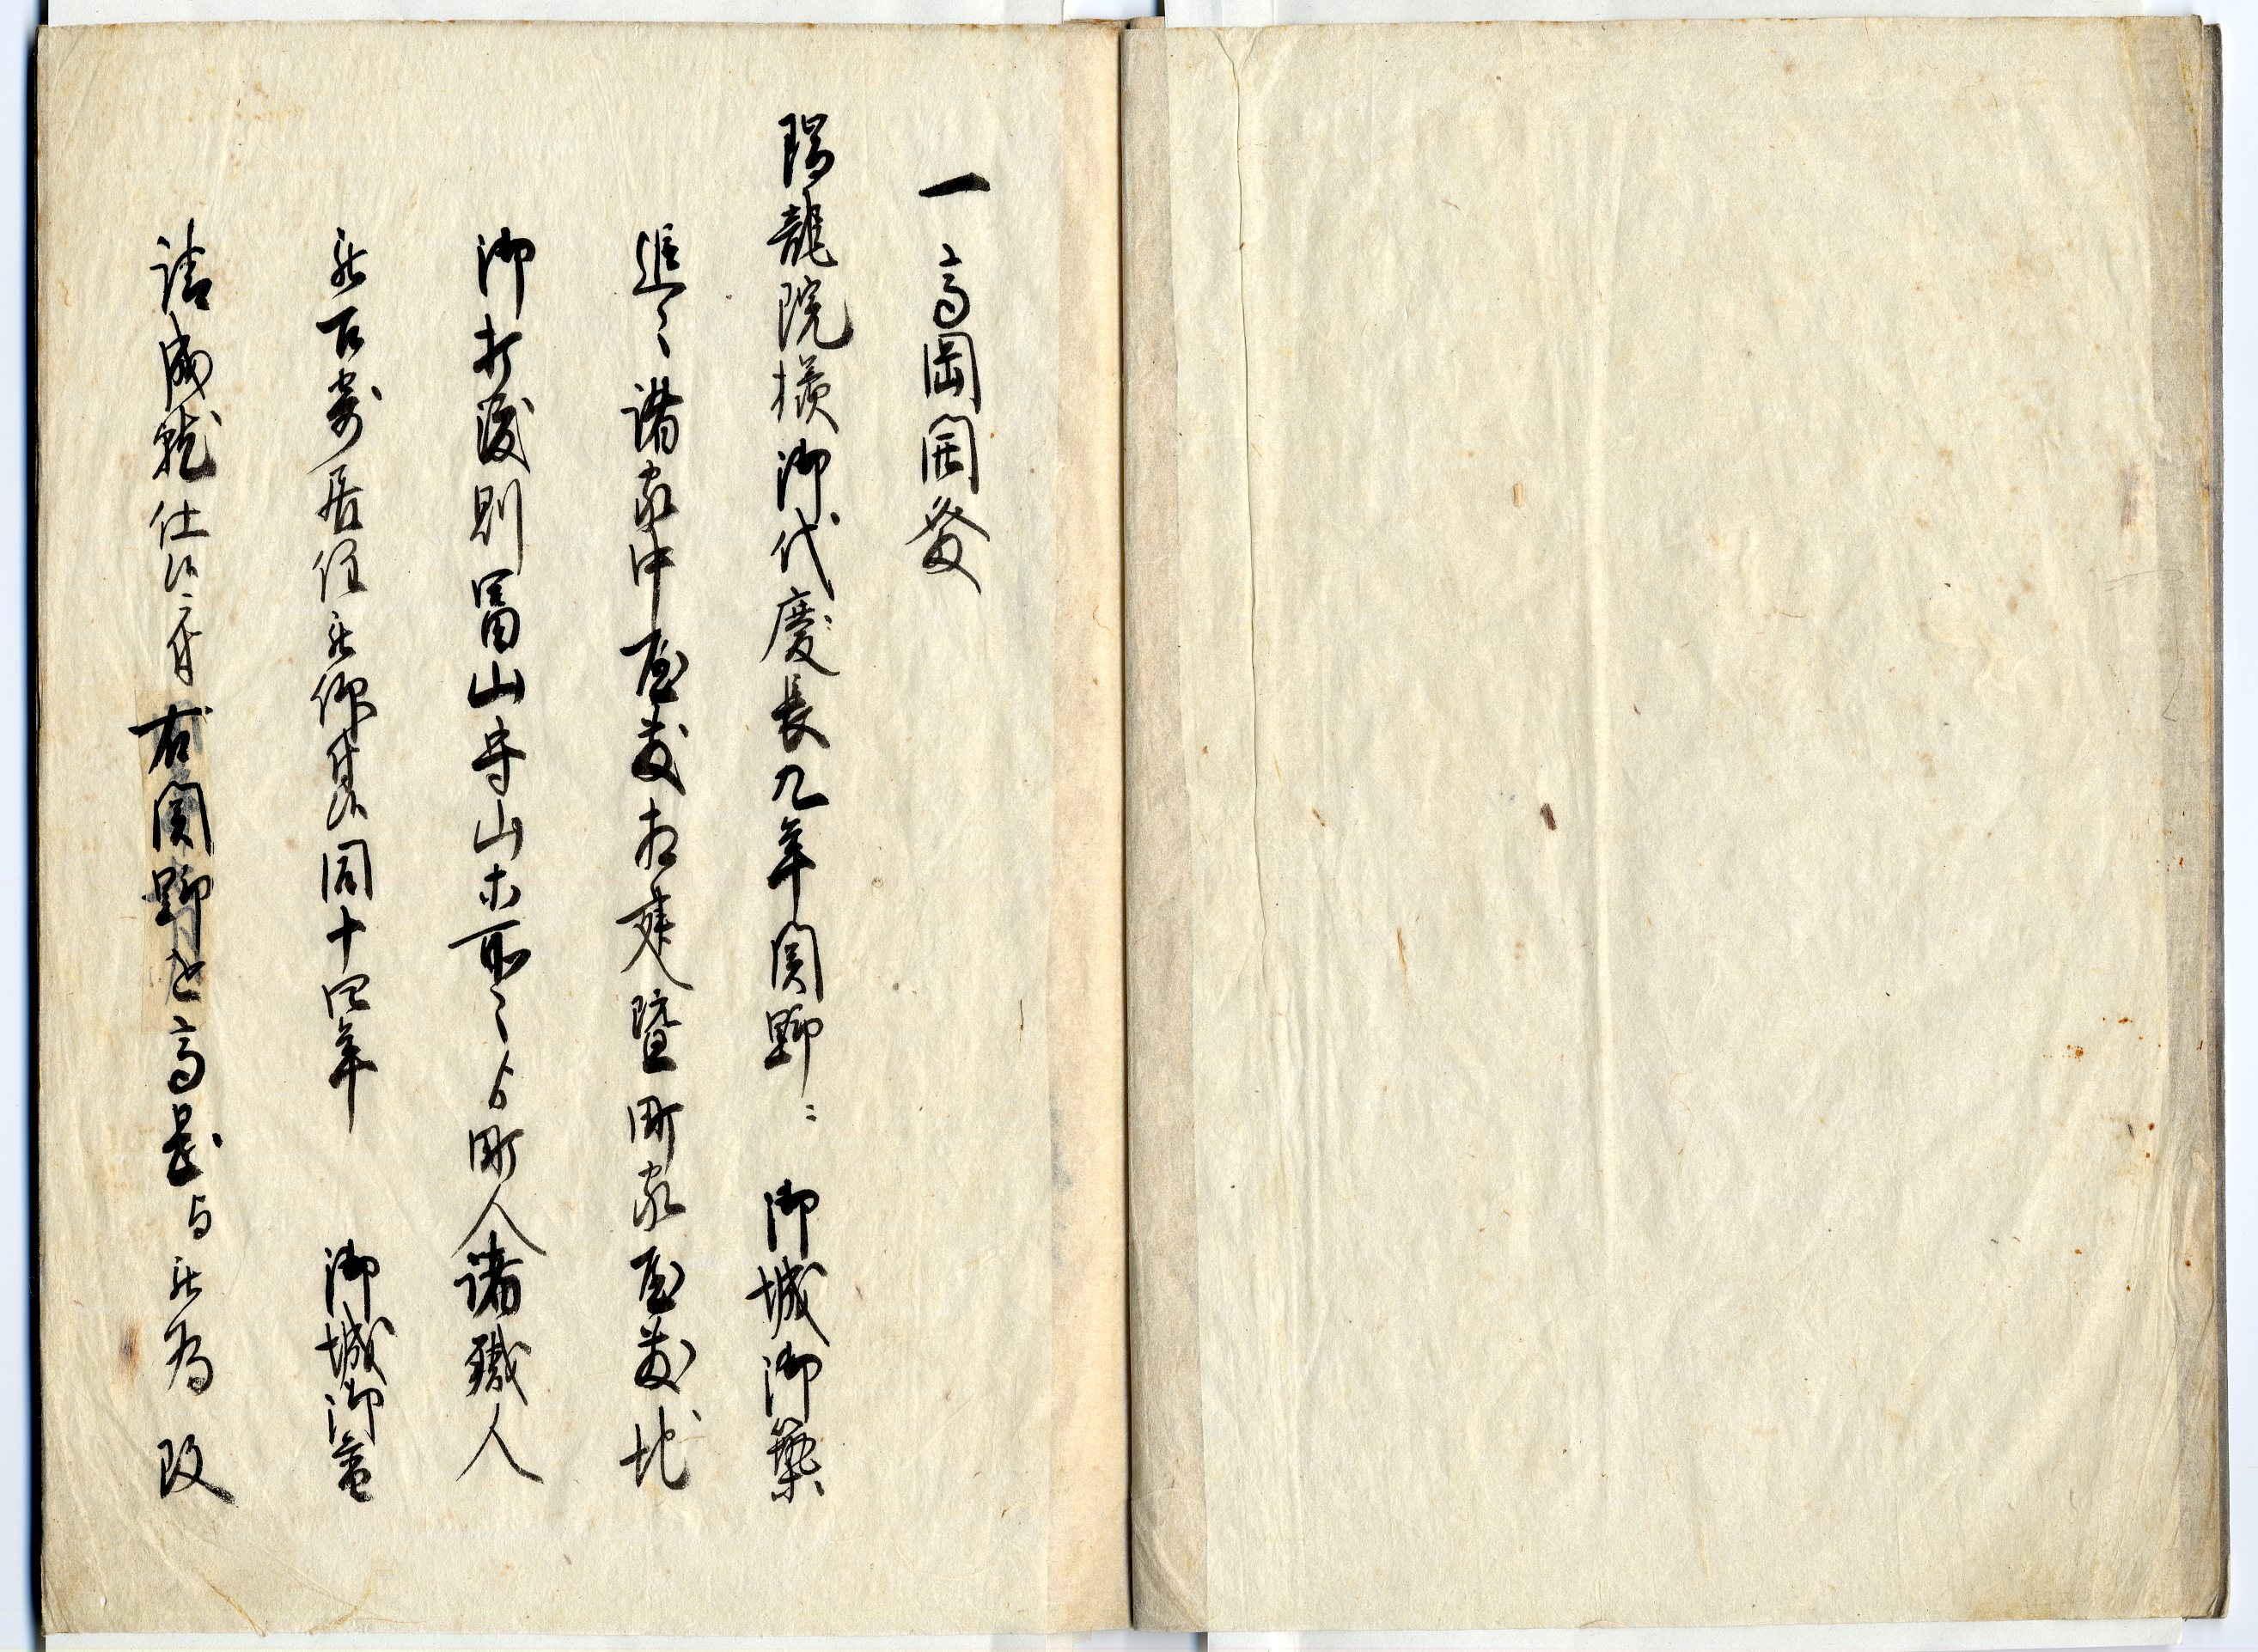 一高岡開發
瑞龍院様御代慶長九年関野ニ御城御築
追々諸家中屋敷相建暨町家屋敷地
御打渡則冨山守山木町々ゟ町人諸職人
被召寄居住被仰付候同十四年御城御普
請成就仕候ニ付右関野を高岡与被為改